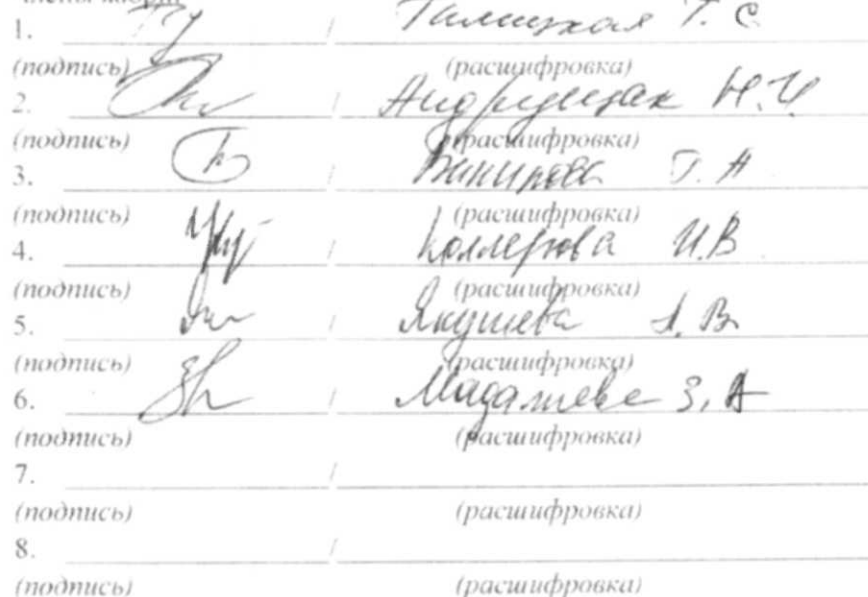 1. / Т. С
(подпись) (расшифровка)
2. / Андрущак Н. И
(подпись) (расшифровка)
3. / Т. А
(подпись) (расшифровка)
4. / Коллерова И.В
(подпись) (расшифровка)
5. / Якушева А. В.
(подпись) (расшифровка)
6. / Мадалиева З. А
(подпись) (расшифровка)
7. /
(подпись) (расшифровка)
8. /
(подпись) (расшифровка)